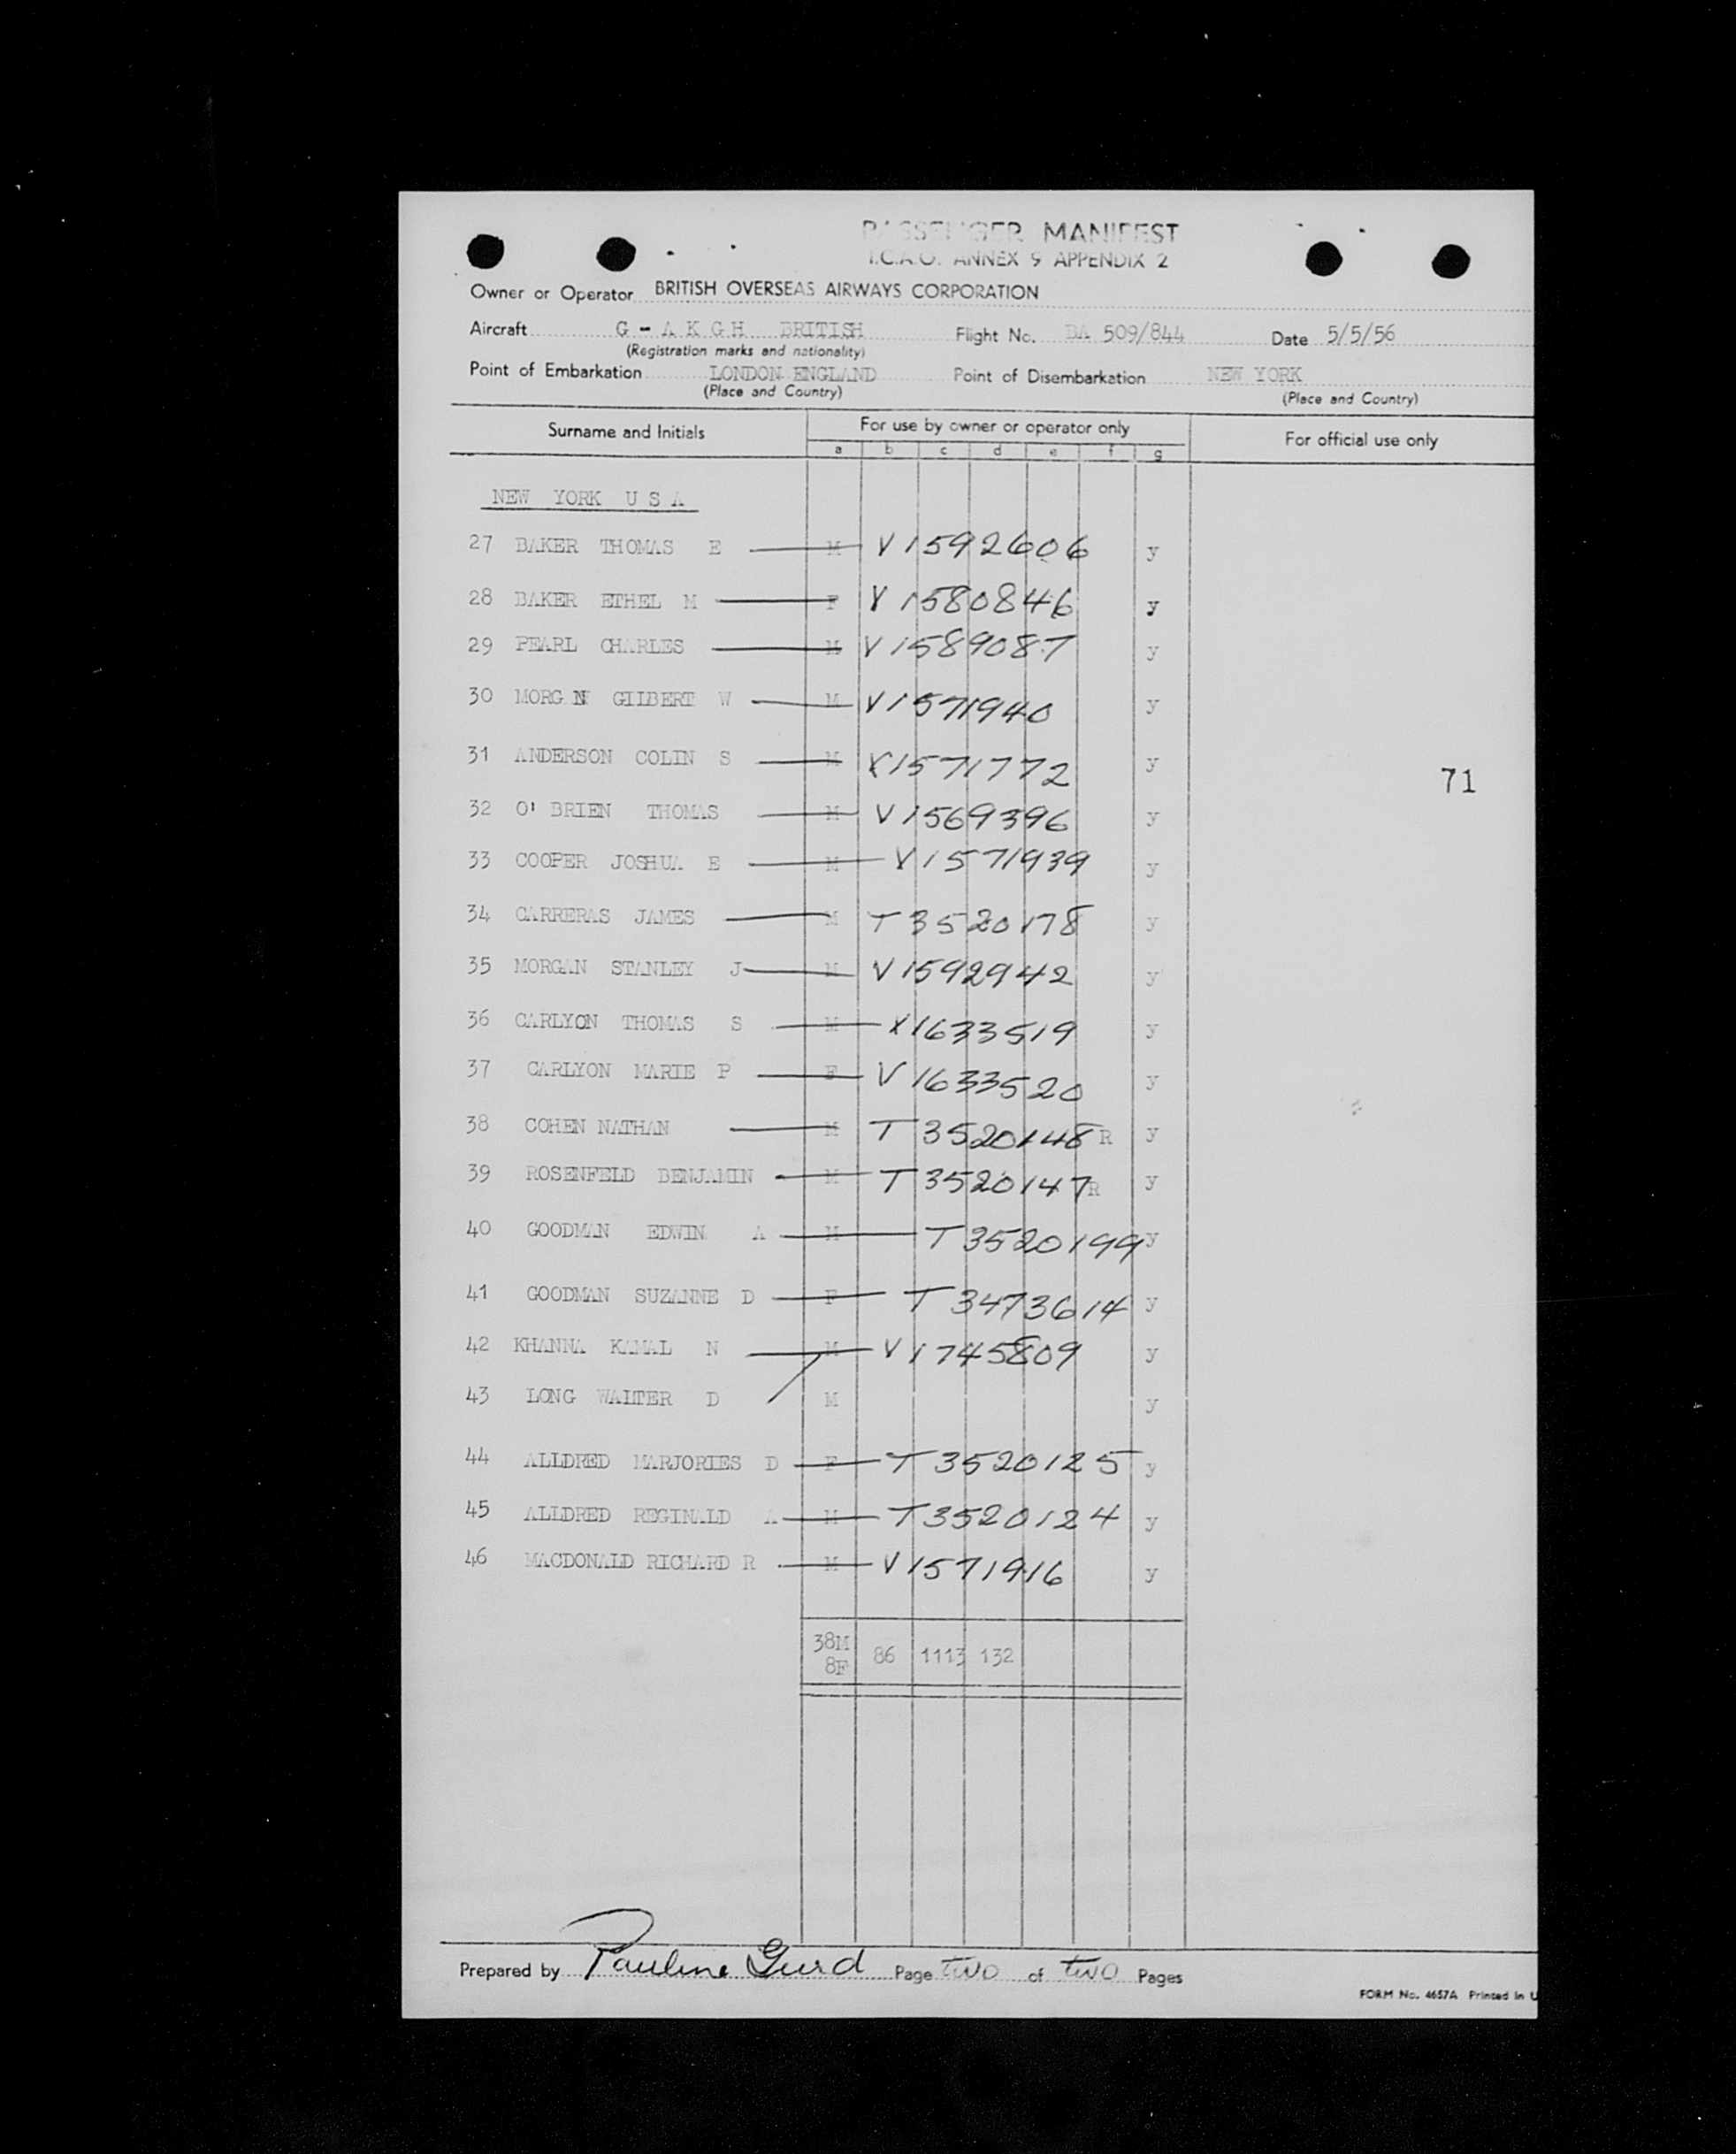 PASSENGER MANIFEST
I.C.A.O. ANNEX 9 APPENDIX 2
Owner or Operator BRITISH OVERSEAS AIRWAYS CORPORATION
Aircraft G - A K G H BRITISH Flight No. BA 509/844 Date 5/5/56
(Registration marks and nationality)
Point of Embarkation LONDON ENGLAND Point of Disembarkation NEW YORK
(Place and Country) (Place and Country)
Surname and Initials For use by owner or operator only For official use only
a b c d e f g
NEW YORK U S A
27 BAKER THOMAS E M V1592606 y
28 BAKER ETHEL M F V1580846 y
29 PEARL CHARLES M V1589087 y
30 MORG N GILBERT W M V1571940 y
31 ANDERSON COLIN S M V1571772 y
71
32 O' BRIEN THOMAS M V1569396 y
33 COOPER JOSHUA E M V1571939 y
34 CARRERAS JAMES M T3520178 y
35 MORGAN STANLEY J M V1592942 y
36 CARLYON THOMAS S M V1633519 y
37 CARLYON MARIE P F V1633520 y
38 COHEN NATHAN M T3520148 R y
39 ROSENFELD BENJAMIN M T3520147 R y
40 GOODMAN EDWIN A M T3520199 y
41 GOODMAN SUZANNE D F T3473614 y
42 KHANNA KAMAL N M V1745809 y
43 LONG WALTER D M y
44 ALLDRED MARJORIES D F T3520125 y
45 ALLDRED REGINALD A M T3520124 y
46 MACDONALD RICHARD R M V1571916 y
38M 86 1113 132
8F
Prepared by Pauline Gurd Page two of two Pages
FORM No. 4657A Printed in U